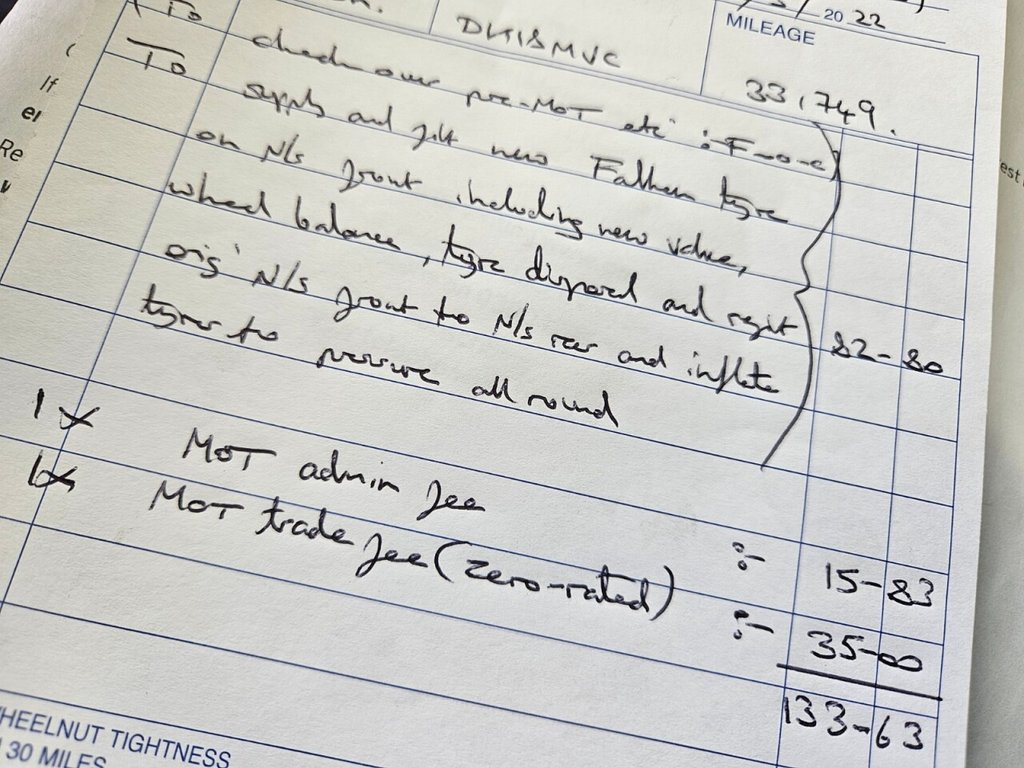 20 22
DK18MVC
MILEAGE
33,749.
To check over pre-MOT etc :F-o-c
To supply and fit new Falken tyre
on N/s front including new valve,
wheel balance, tyre disposal and refit
orig' N/s front to N/s rear and inflate
tyres to pressure all round
82-80
1x MOT admin fee :- 15-83
1x MOT trade fee (zero-rated) :- 35-00
133-63
HEELNUT TIGHTNESS
30 MILES
If
Re
est